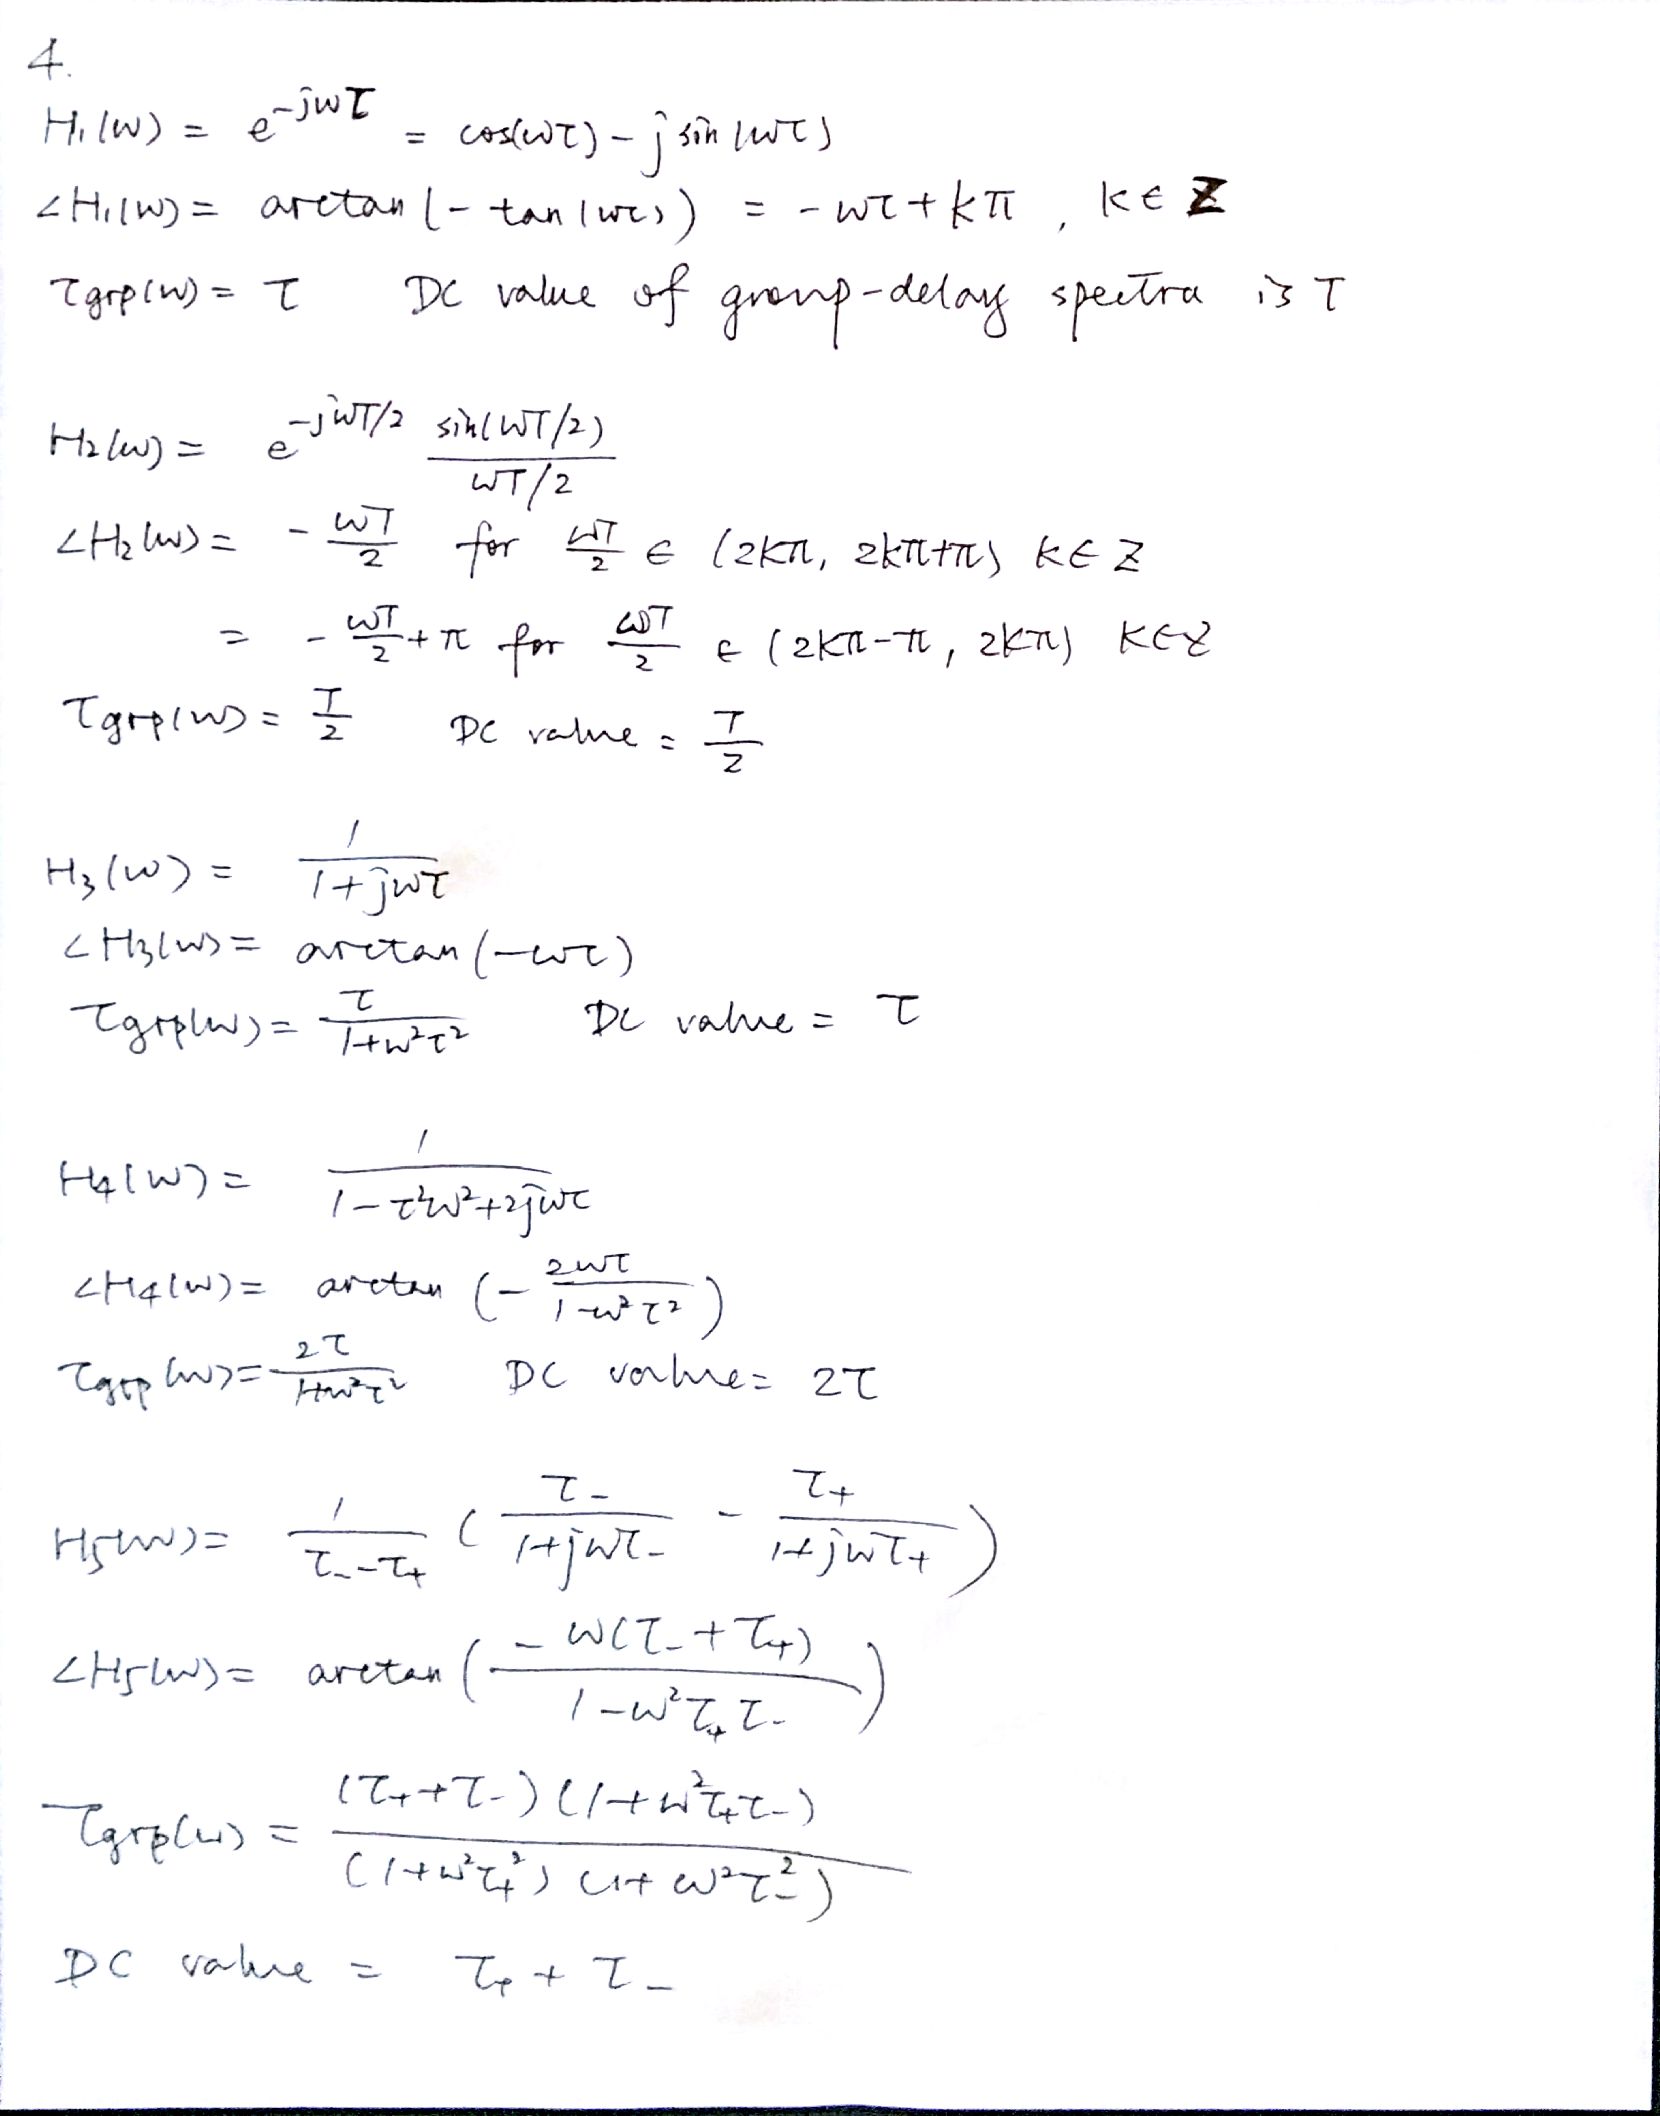 4.
H₁(ω) = e^{-jωτ} = cos(ωτ) - j sin(ωτ)
∠H₁(ω) = arctan(-tan(ωτ)) = -ωτ + kπ , k ∈ Z
τgrp(ω) = τ DC value of group-delay spectra is τ
H₂(ω) = e^{-jωT/2} sin(ωT/2) / (ωT/2)
∠H₂(ω) = -ωT/2 for ωT/2 ∈ (2kπ, 2kπ+π) k ∈ Z
= -ωT/2 + π for ωT/2 ∈ (2kπ-π, 2kπ) k ∈ Z
τgrp(ω) = T/2 DC value = T/2
H₃(ω) = 1 / (1+jωτ)
∠H₃(ω) = arctan(-ωτ)
τgrp(ω) = τ / (1+ω²τ²) DC value = τ
H₄(ω) = 1 / (1-τ²ω²+2jωτ)
∠H₄(ω) = arctan(- 2ωτ / (1-ω²τ²))
τgrp(ω) = 2τ / (1+ω²τ²) DC value = 2τ
H₅(ω) = 1/(τ₋-τ₊) ( τ₋/(1+jωτ₋) - τ₊/(1+jωτ₊) )
∠H₅(ω) = arctan( -ω(τ₋+τ₊) / (1-ω²τ₊τ₋) )
τgrp(ω) = (τ₊+τ₋)(1+ω²τ₊τ₋) / ((1+ω²τ₊²)(1+ω²τ₋²))
DC value = τ₊ + τ₋